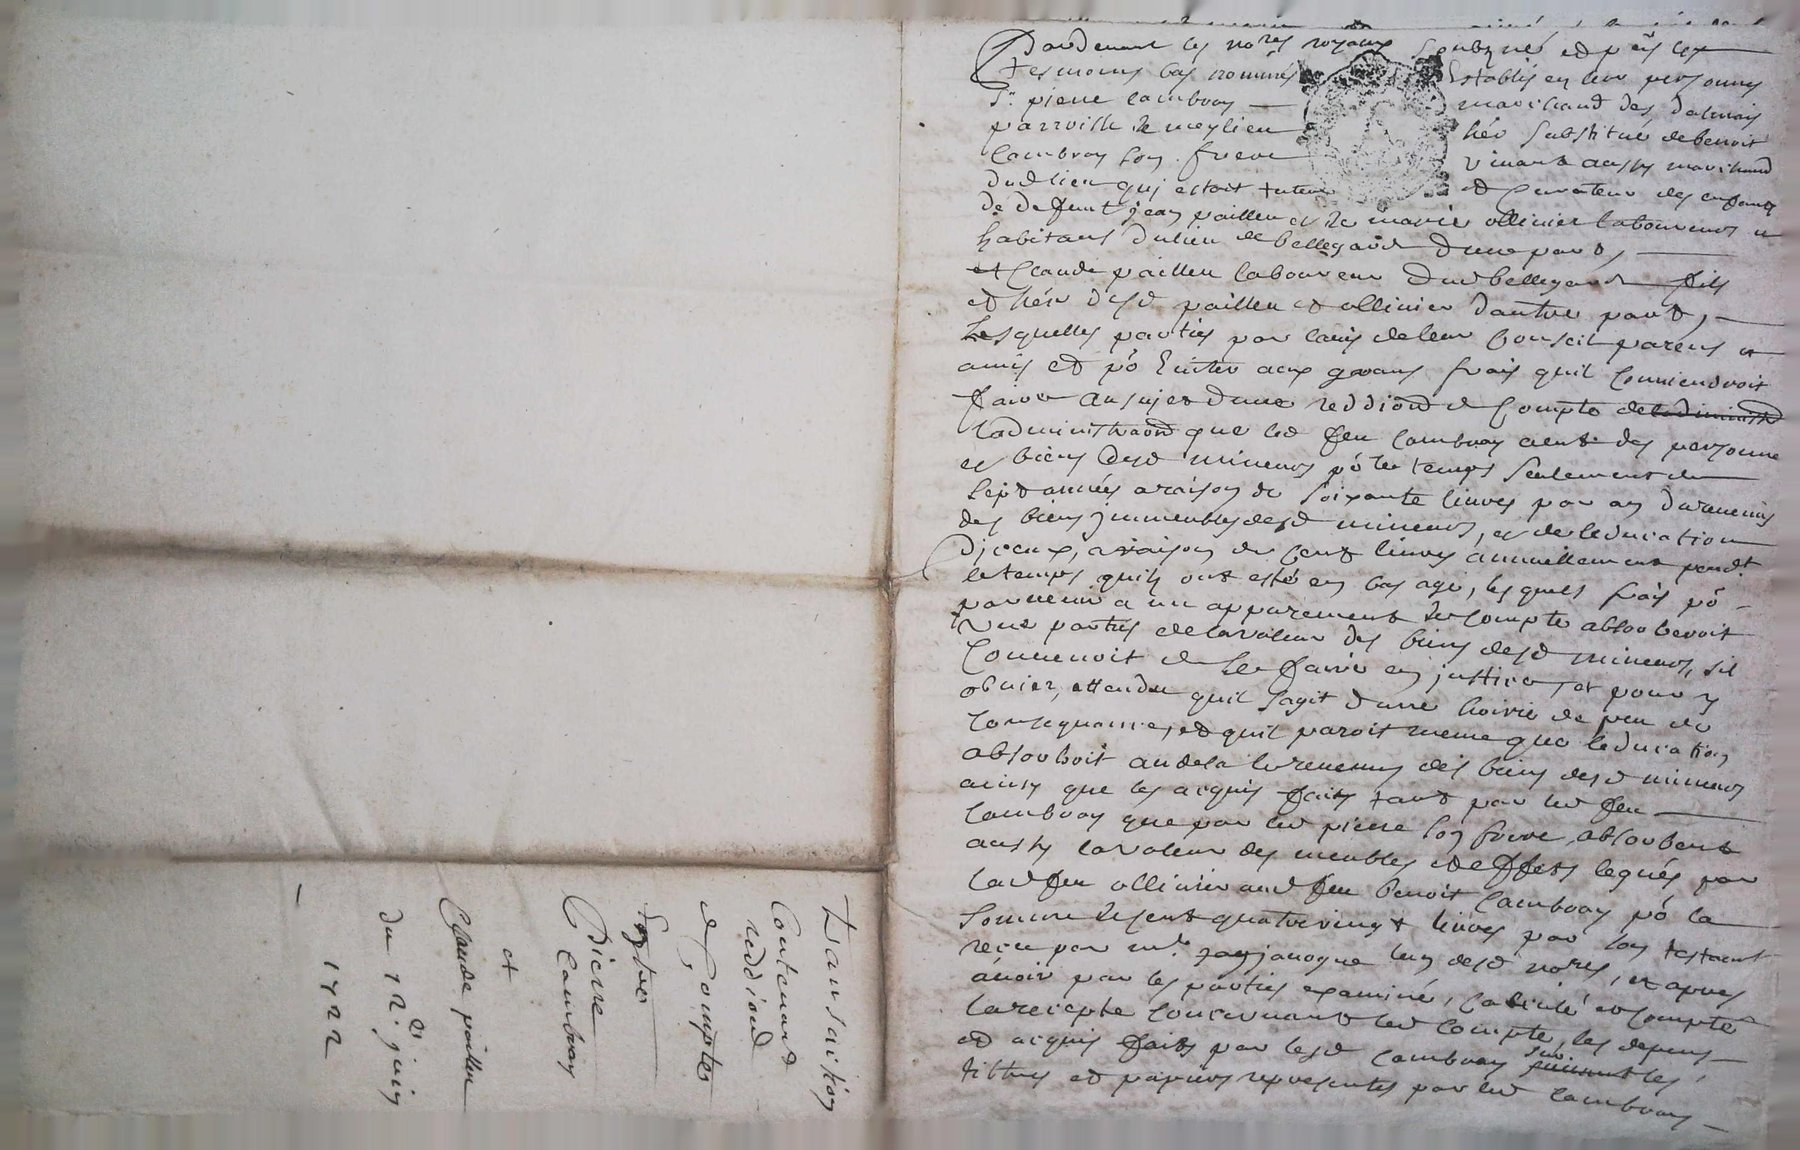 Pardevant les no.res royaux soubznés et p.ns les
tesmoins bas nommés establis en leur personnes
S.r pierre cambray marchand des dalmais
parroisse de meylieu hér substitué de benoit
Cambray son frere vivant aussy marchand
dud lieu quj estoit tuteur et curateur des enfans
de deffunt jean paillieu et de marie ollivier laboureurs
habitans du lieu de bellegarde dune part,
et Claude paillieu laboureur dud bellegarde fils
et hér desd paillieu et ollivier dautre part,
Lesquelles parties par lavis de leur conseil parens et
amis et po.r Eviter aux grans frais quil conviendroit
faire au sujet dune reddiond de compte de ladministr
ladministraond que led feu Cambray a eut des personne
et biens desd mineurs po.r le temps seulement de
sept années a raison de soixante livres par an du revenus
des biens jmmeubles desd mineurs, et de leducation
djceux, a raison de cent livres annuellement pend.t
le temps quils ont esté en bas age, lesquels frais po.r
parvenir a un appurement de compte absorberoit
une parties de la valeur des biens desd mineurs, sil
convenoit de le faire en justice, et pour y
obvier, attendu quil sagit dune hoirie de peu de
consequance, et quil paroit meme que leducation
absorboit audela le revenus des biens desd mineurs
ainsy que les acquis faits tant par led feu
Cambray que par led pierre son frere, absorbent
aussy la valeur des meubles et effets legués par
lad feu ollivier aud feu benoit Cambray po.r la
somme de cent quatre vingt livres par son testament
receu par m.e janjacque lun desd no.res, et apres
avoir par les parties examiné, calculé et compté
la recepte concernant led compte, les depens
et acquis faits par lesd Cambray suivant sur les
tiltres et papiers representés par led Cambray
Transaction
Contenant
reddiond
de Comptes
Entre
Pierre
Cambray
et
Claude paillieu
du 12.e juin
1722